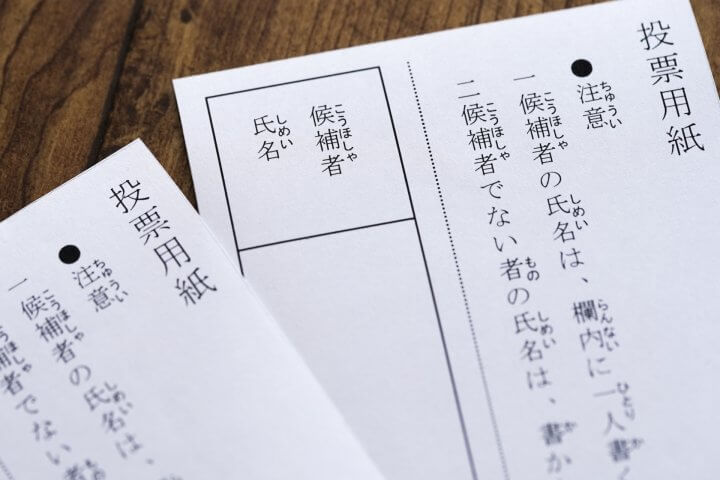 投票用紙
●注意
ちゅうい
一 候補者の氏名は、欄内に一人書く
こうほしゃ しめい らんない ひとり か
二 候補者でない者の氏名は、書か
こうほしゃ もの しめい か
候補者
こうほしゃ
氏名
しめい
投票用紙
●注意
ちゅうい
一 候補者の氏名は、
こうほしゃ しめい
補者でない者
ほしゃ もの